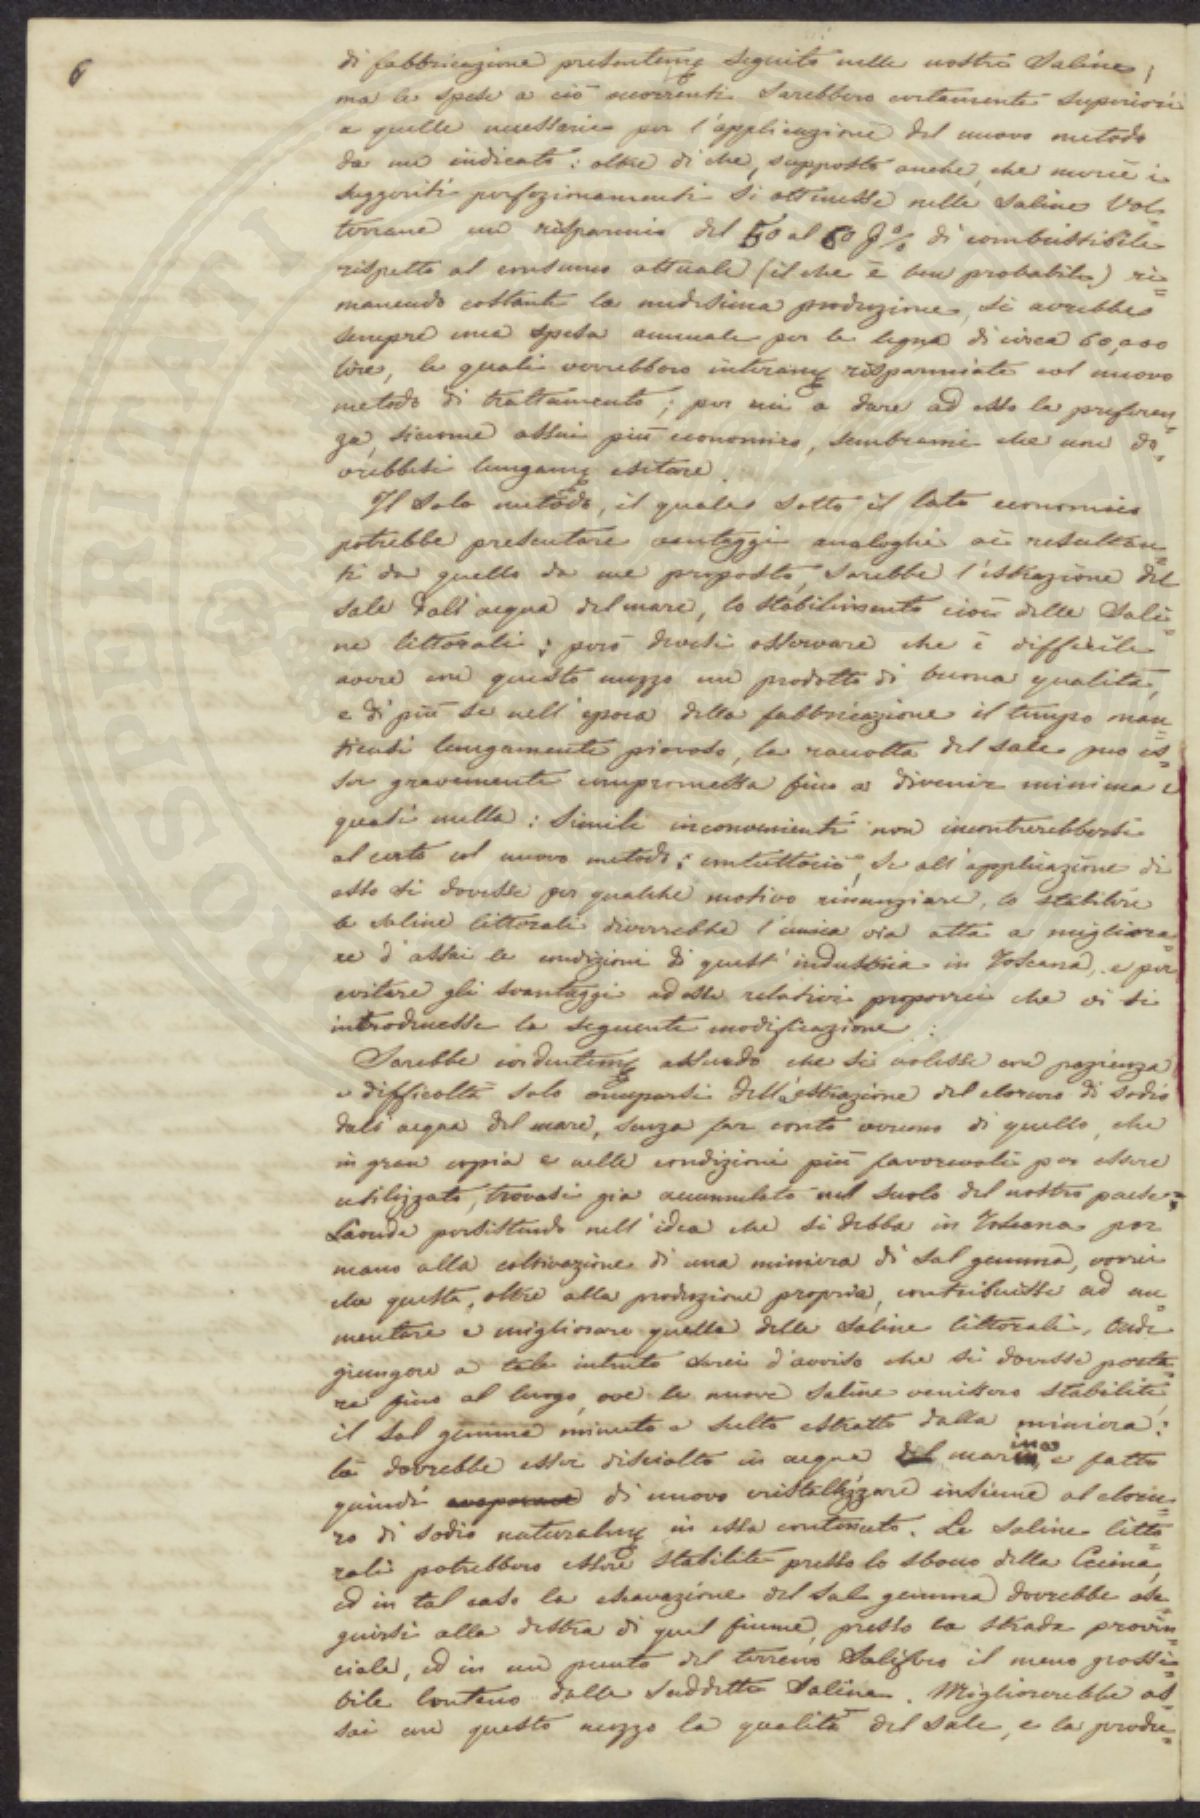 6
di fabbricazione presentemẽ seguito nelle nostre Saline;
ma le spese a ciò occorrenti sarebbero certamente superiori
a quelle necessarie per l'applicazione del nuovo metodo
da me indicato: oltre di che, supposto anche, che mercè i
suggeriti perfezionamenti si ottenesse nelle Saline Vol=
terrane un risparmio del 50 al 60 p% di combustibile
rispetto al consumo attuale (il che è ben probabile) ri=
manendo costante la medesima produzione, si avrebbe
sempre una spesa annuale per le legna di circa 60,000
lire, le quali verrebbero interamẽ risparmiate col nuovo
metodo di trattamento; per cui a dare ad esso la preferen=
za, siccome assai più economico, sembrami che non do=
vrebbesi lungamẽ esitare.
Il solo metodo, il quale sotto il lato economico
potrebbe presentare vantaggi analoghi ai resultan=
ti da quello da me proposto, sarebbe l'estrazione del
sale dall'acqua del mare, lo stabilimento cioè delle Sali=
ne littorali; però devesi osservare che è difficile
avere con questo mezzo un prodotto di buona qualità,
e di più se nell'epoca della fabbricazione il tempo man=
tiensi lungamente piovoso, la raccolta del sale può es=
ser gravemente compromessa fino a divenir minima e
quasi nulla: Simili inconvenienti non incontrerebbersi
al certo col nuovo metodo; contuttociò, se all'applicazione di
esso si dovesse per qualche motivo rinunziare, lo stabilire
le Saline littorali diverrebbe l'unica via atta a migliora=
re d'assai le condizioni di quest'industria in Toscana, e per
evitare gli svantaggi ad esse relativi proporrei che vi si
introducesse la seguente modificazione:
Sarebbe evidentemẽ assurdo che si volesse con pazienza
e difficoltà solo occuparsi dell'estrazione del cloruro di sodio
dall'acqua del mare, senza far conto veruno di quello, che
in gran copia e nelle condizioni più favorevoli per essere
utilizzato, trovasi già accumulato nel suolo del nostro paese;
Laonde persistendo nell'idea che si debba in Toscana por
mano alla coltivazione di una miniera di Sal gemma, vorrei
che questa, oltre alla produzione propria, contribuisse ad au=
mentare e migliorare quella delle Saline littorali. Onde
giungere a tale intento sarei d'avviso che si dovesse porta=
re fino al luogo, ove le nuove Saline venissero stabilite,
il Sal gemma minuto e scelto estratto dalla miniera:
là dovrebbe esser disciolto in acqua del marina e fatto
quindi evaporare di nuovo cristallizzare insieme al cloru=
ro di sodio naturalmẽ in essa contenuto. Le Saline litto=
rali potrebbero essere stabilite presso lo sbocco della Cecina,
ed in tal caso la escavazione del Sal gemma dovrebbe ese=
guirsi alla destra di quel fiume, presso la strada provin=
ciale, ed in un punto del terreno Salifero il meno possi=
bile lontano dalle suddette Saline. Migliorerebbe as=
sai con questo mezzo la qualità del Sale, e la produ=